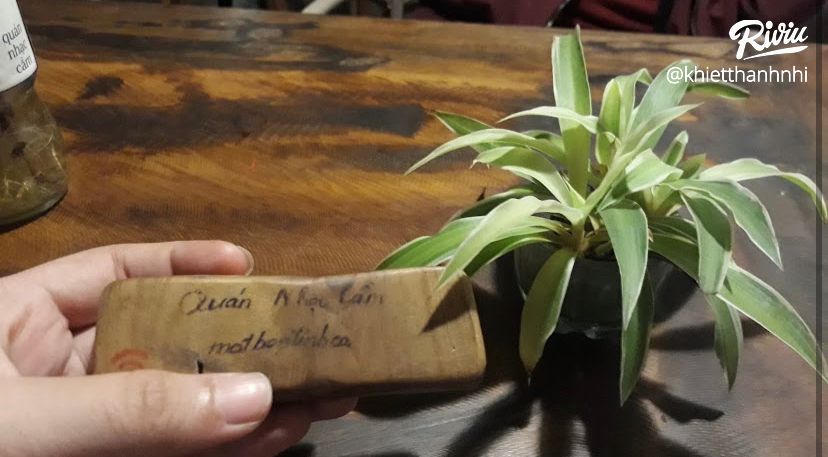 quán
nhạc
cấm
Riviu
@khietthanhnhi
Quán Nhạc Cấm
motbantinhca